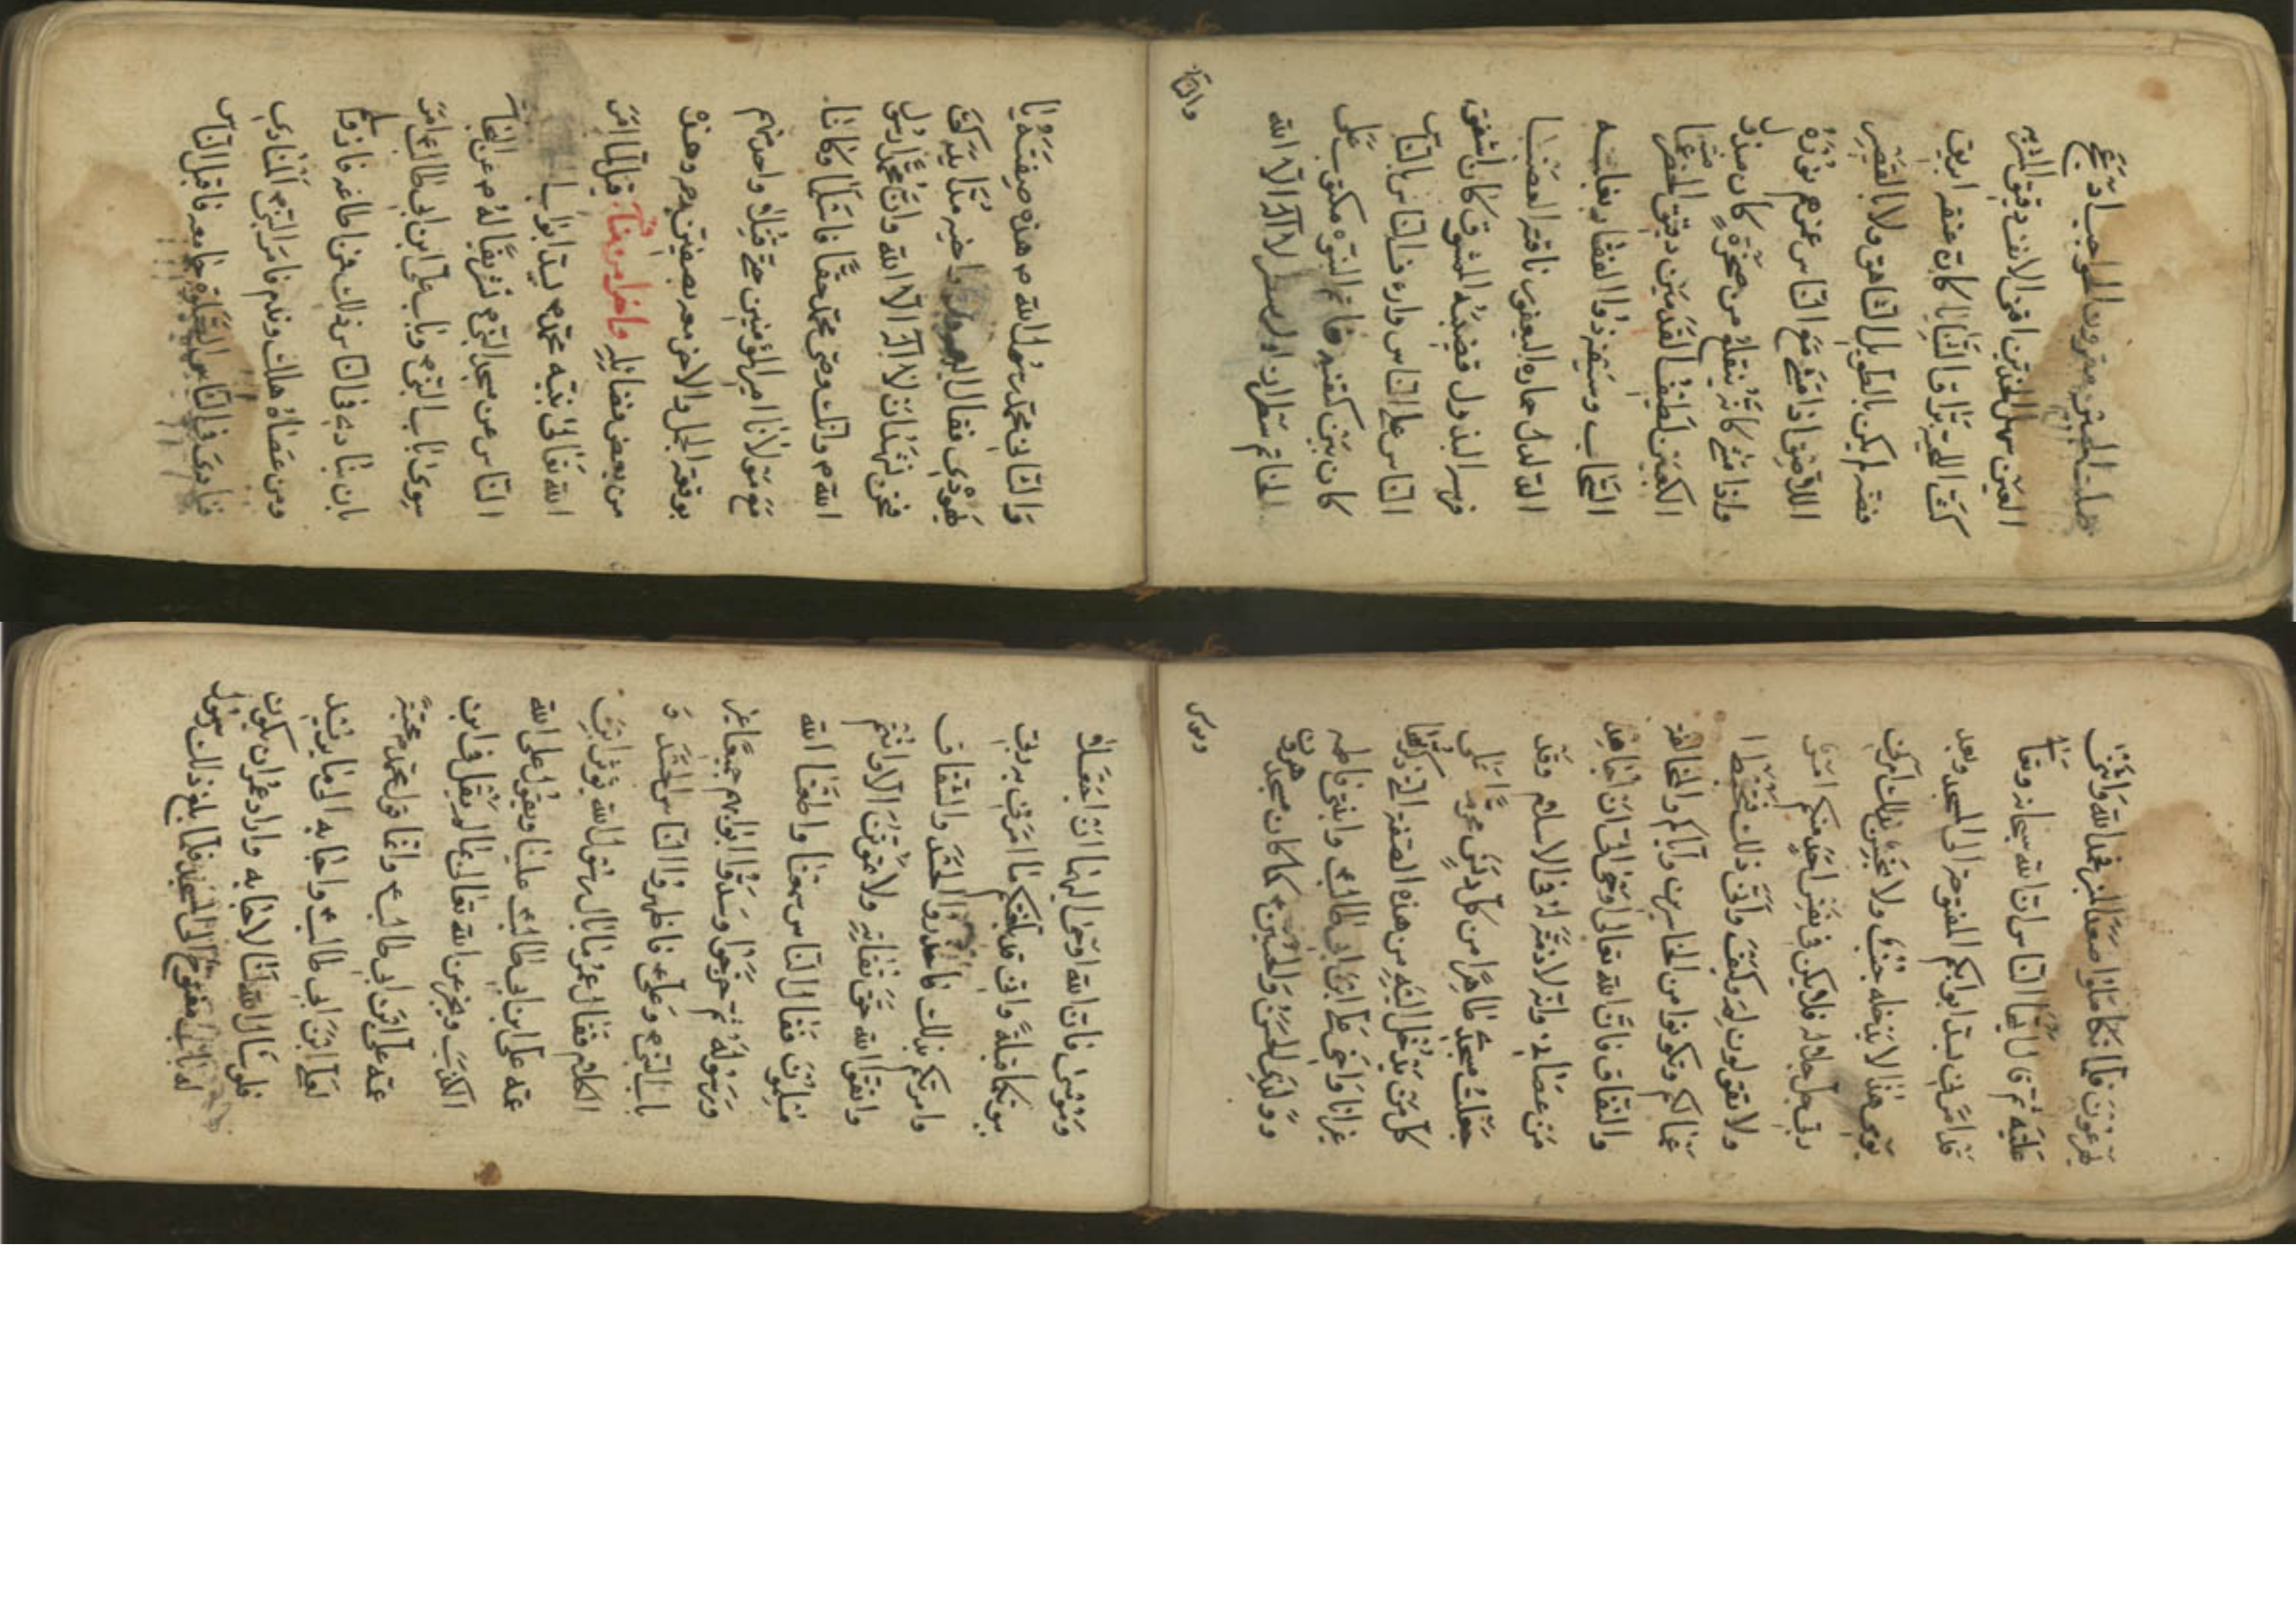 صلت الجبين مقرون الحواجب ادعج
العينين سهل الخدين اقنى الانف دقيق المسربه
كث اللحية براق الثنايا كان عنقه ابريق
فضه لم يكن بالطويل الشاهق ولا بالقصير
اللاصق اذا مشى مع الناس غمرهم نوره
واذا مشى كانه يتقلع من صخرة كان
الكعبين لطيف القدمين دقيق الخصر
السحاب وسيفه ذو الفقار وبغلته
الدلدل حماره اليعفور ناقته العضبا
فرسه البذول قضيبه الممشوق كان اشفق
الناس على الناس واراف الناس بالناس
كان بين كتفيه خاتم النبوه مكتوب على
الخاتم سطران اول سطر لا اله الا الله
والثاني
والثاني محمد رسول الله ص هذه صفته يا
يهودي فقال
فنحن نشهد ان لا اله الا الله وان محمدا رسول
الله ص وانك وصي محمد حقا فاسلما وكانا
مع مولانا امير المؤمنين حتى قتل واحد منهم
بوقعة الجمل والاخر معه بصفين وهذه
من بعض فضائله واخرا من مناقبه قيل لما امر
الله تعالى نبيه محمد ص بسد ابواب
الناس عن مسجد النبي ص تشريفا له ص عن
سوى باب النبي ص وباب علي ابن ابي طالب ع امر
بان ينادي في الناس بذلك فمن اطاعه فاز وسلم
ومن عصاه هلك وندم فامر النبي ص المنادي
فنادى في الناس الصلوة جامعه فاقبل الناس
يهرعون فلما تكاملوا صعد المنبر فحمد الله واثنى
عليه ثم قال ايها الناس ان الله سبحانه وتعالى
قد امرني بسد ابوابكم المفتوحة الى المسجد وبعد
يومي هذا لا يدخله جنب ولا نجس بذلك امرني
ربي جل جلاله فلا يكن في نفس احد منكم امر
ولا تقولون لم وكيف وانى ذلك فتحبط
اعمالكم وتكونوا من الخاسرين واياكم والمخالفة
والنفاق فان الله تعالى اوحى الي ان اجاهد
من عصاني وانه لا ذمة له في الاسلام وقد
جعلت مسجدي طاهرا من كل دنس محرما على
كل من يدخل اليه من هذه الصفة التي ذكرتها
غير انا واخي علي ابن ابي طالب ع وابنتي فاطمه
وولدي الحسن والحسين ع كما كان مسجد هرون
وموسى
وموسى فان الله اوحى اليهما ان اجعلا
بيوتكما قبلة واني قد بلغتكم ما امرني به ربي
وامرتكم بذلك فاحذروا الحسد والنفاق
واتقوا الله حق تقاته ولا تموتن الا وانتم
مسلمون فقال الناس سمعنا واطعنا الله
ورسوله ثم خرجوا وسدوا ابوابهم جميعا غير
باب النبي ص وعلي ع فاظهروا الناس الحسد و
الكلام فقال عمر ما بال رسول الله يؤثر ابن
عمه علي ابن ابي طالب ع علينا ويقول على الله
الكذب ويخبر عن الله تعالى بما لم يقل في ابن
عمه علي ابن ابي طالب ع وانما قول محمد ص محبة
لعلي ابن ابي طالب ع واجابه الى ما يريد
فلو سال الله لنا لاجابه واراد عمر ان يكون
له باب مفتوح الى المسجد فلما بلغ ذلك رسول